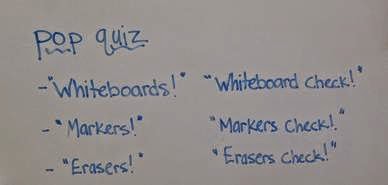 pop quiz
-"Whiteboards!" "Whiteboard check!"
-"Markers!" "Markers check!"
-"Erasers!" "Erasers check!"